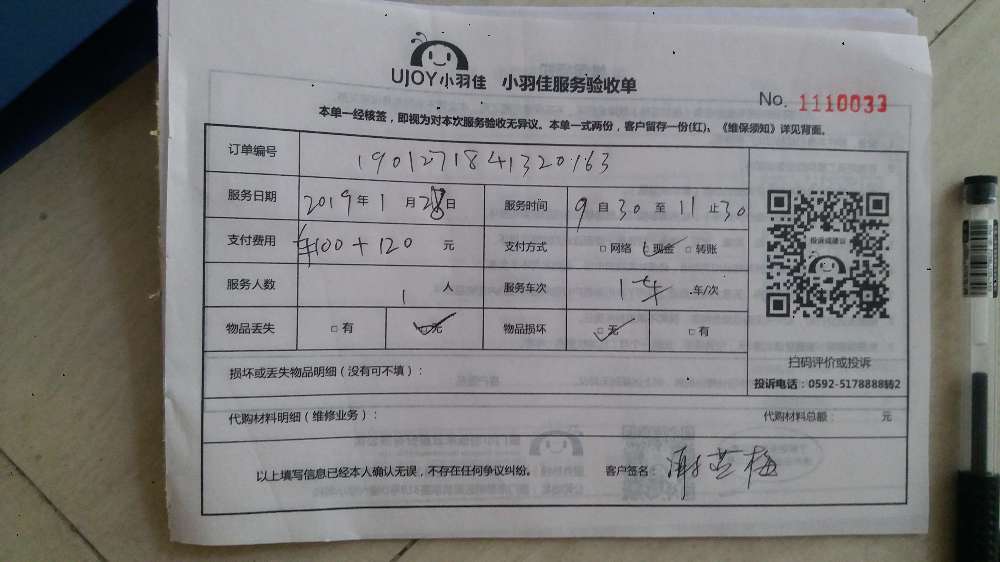 UJOY小羽佳 小羽佳服务验收单
No. 1110033
本单一经核签，即视为对本次服务验收无异议。本单一式两份，客户留存一份(红)、《维保须知》详见背面。
订单编号 1901271841320163
服务日期 2019年1月28日 服务时间 9自30至11止30
支付费用 ¥100+120元 支付方式 □网络 □现金 □转账
服务人数 1人 服务车次 1车 车/次
物品丢失 □有 □无 物品损坏 □无 □有
投诉或建议
扫码评价或投诉
投诉电话：0592-5178888转2
损坏或丢失物品明细（没有可不填）：
代购材料明细（维修业务）： 代购材料总额： 元
以上填写信息已经本人确认无误，不存在任何争议纠纷。 客户签名：